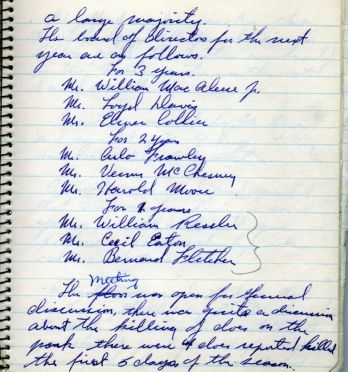 a large majority.
The board of directors for the next
year are as follows.
For 3 years.
Mr. William Mac Jr.
Mr. Loyd Davis
Mr. Elmer Collier
For 2 years
Mr. Arlo Frawley
Mr. Verne McChesney
Mr. Harold Moore
For 1 years
Mr. William Ressler
Mr. Cecil Eaton
Mr. Bernard Fletcher
Meeting
The floor was open for General
discussion, there was quite a discussion
about the killing of does on the
park there were 4 does reported killed
the first 5 days of the season.